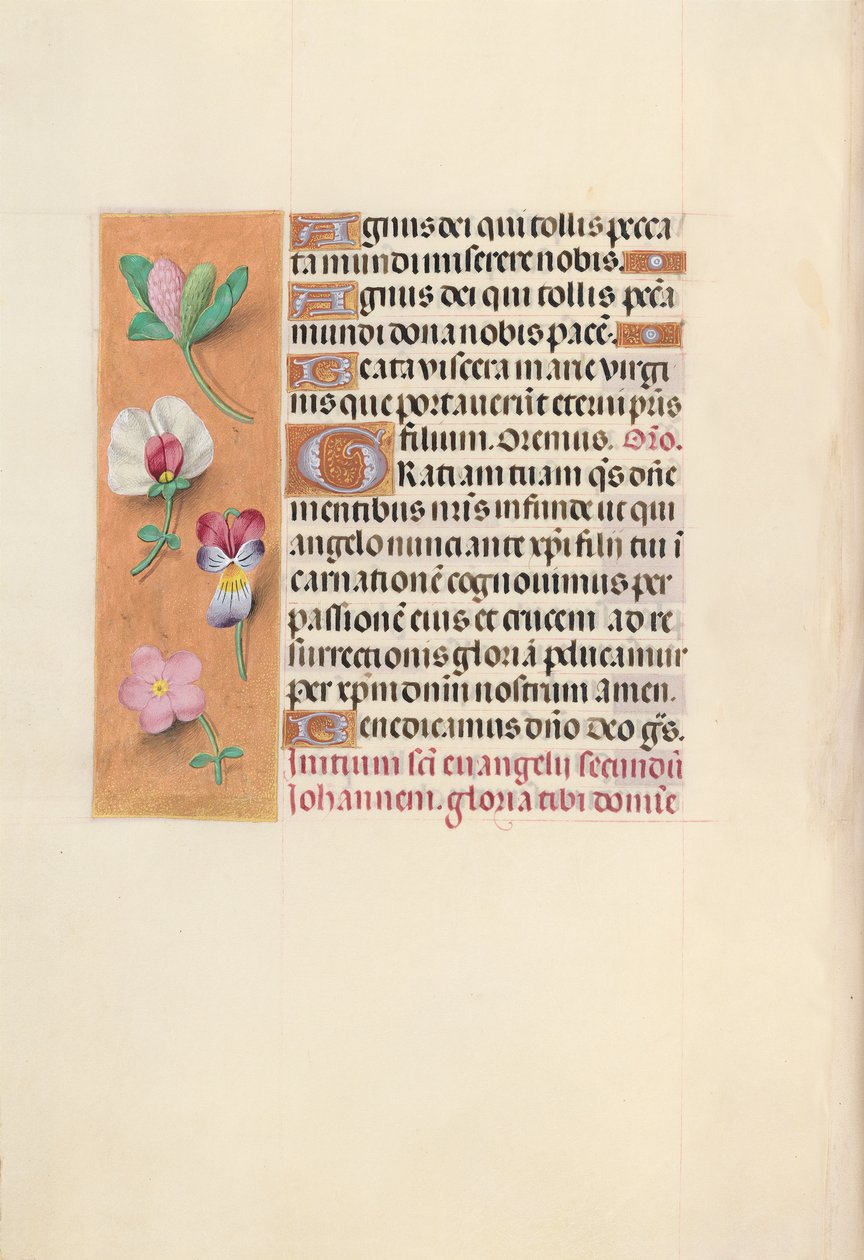 Agnus dei qui tollis pecca
ta mundi miserere nobis.
Agnus dei qui tollis pcc̄a
mundi dona nobis pacē.
Beata viscera marie virgi
nis que portaverūt eterni pr̄is
filium. Oremus. Or̄o.
Gratiam tuam q̄s dn̄e
mentibus nr̄is infunde ut qui
angelo nunciante xp̄i filij tui ī
carnationē cognovimus per
passionē eius et crucem ad re
surrectionis gloriā pducamur
per xp̄m dnm̄ nostrum Amen.
Benedicamus dn̄o Deo gr̄s.
Initium sc̄i euangelij secundū
Johannem. gloria tibi domīe